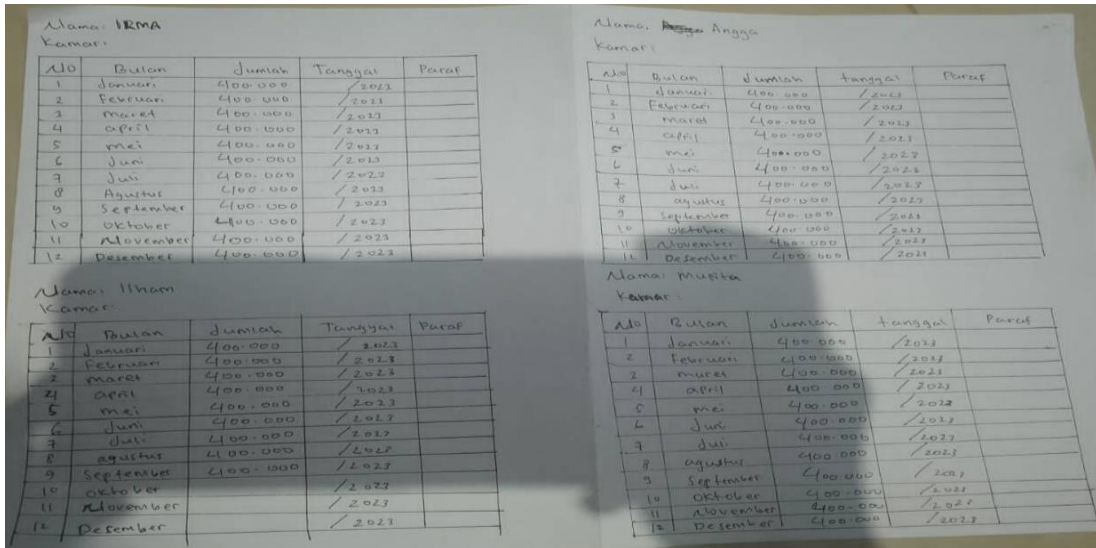 Nama: IRMA
Kamar:
No Bulan Jumlah Tanggal Paraf
1 Januari 400.000 /2023
2 Februari 400.000 /2023
3 maret 400.000 /2023
4 april 400.000 /2023
5 mei 400.000 /2023
6 Juni 400.000 /2023
7 Juli 400.000 /2023
8 Agustus 400.000 /2023
9 September 400.000 /2023
10 oktober 400.000 /2023
11 November 400.000 /2023
12 Desember 400.000 /2023
Nama: Angga
Kamar:
No Bulan Jumlah tanggal Paraf
1 Januari 400.000 /2023
2 Februari 400.000 /2023
3 maret 400.000 /2023
4 april 400.000 /2023
5 mei 400.000 /2023
6 Juni 400.000 /2023
7 Juli 400.000 /2023
8 agustus 400.000 /2023
9 September 400.000 /2023
10 oktober 400.000 /2023
11 November 400.000 /2023
12 Desember 400.000 /2023
Nama: Ilham
Kamar:
No Bulan Jumlah Tanggal Paraf
1 Januari 400.000 /2023
2 Februari 400.000 /2023
3 maret 400.000 /2023
4 april 400.000 /2023
5 mei 400.000 /2023
6 Juni 400.000 /2023
7 Juli 400.000 /2023
8 agustus 400.000 /2023
9 September 400.000 /2023
10 oktober /2023
11 November /2023
12 Desember /2023
Nama:
Kamar:
No Bulan Jumlah tanggal Paraf
1 Januari 400.000 /2023
2 Februari 400.000 /2023
3 maret 400.000 /2023
4 april 400.000 /2023
5 mei 400.000 /2023
6 Juni 400.000 /2023
7 Juli 400.000 /2023
8 agustus 400.000 /2023
9 September 400.000 /2023
10 oktober 400.000 /2023
11 November 400.000 /2023
12 Desember 400.000 /2023